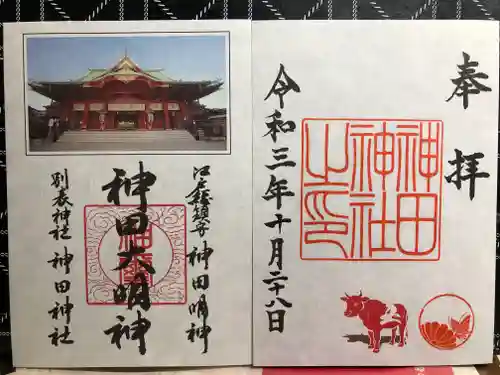 奉拝
神田神社之印
令和三年十月二十八日
江戸総鎮守 神田明神
神田大明神
別表神社 神田神社